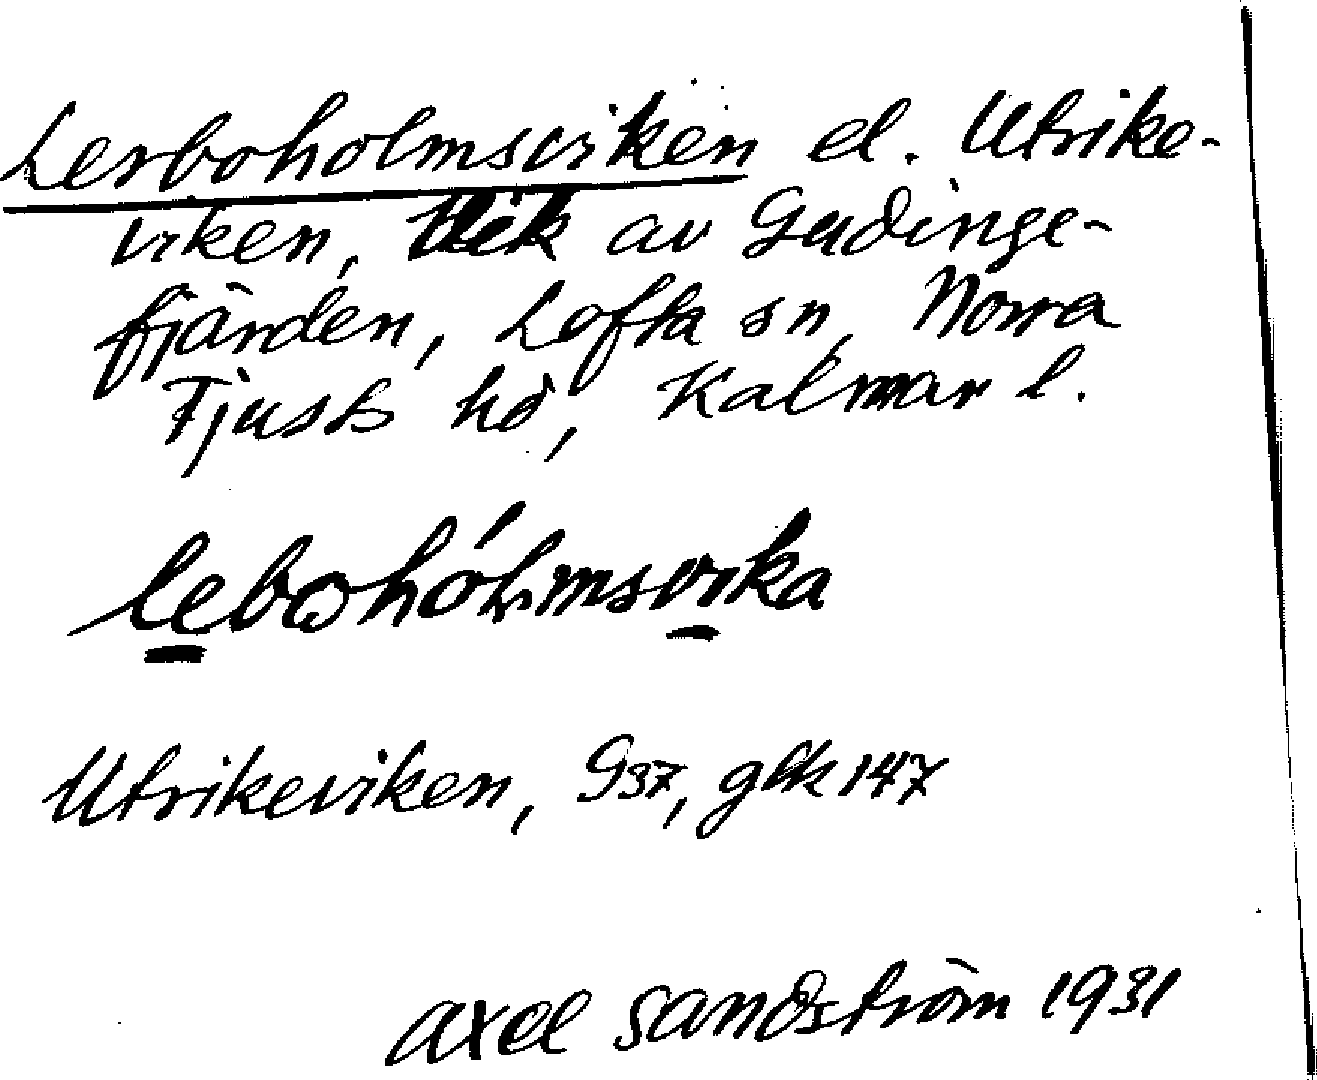 Lerboholmsviken el. Utrike-
viken, vik av Gudinge-
fjärden, Lofta sn, Norra
Tjusts hd, Kalmar l.
lebohólmsvika
Utrikeviken, G37, glk 147
Axel Sandström 1931